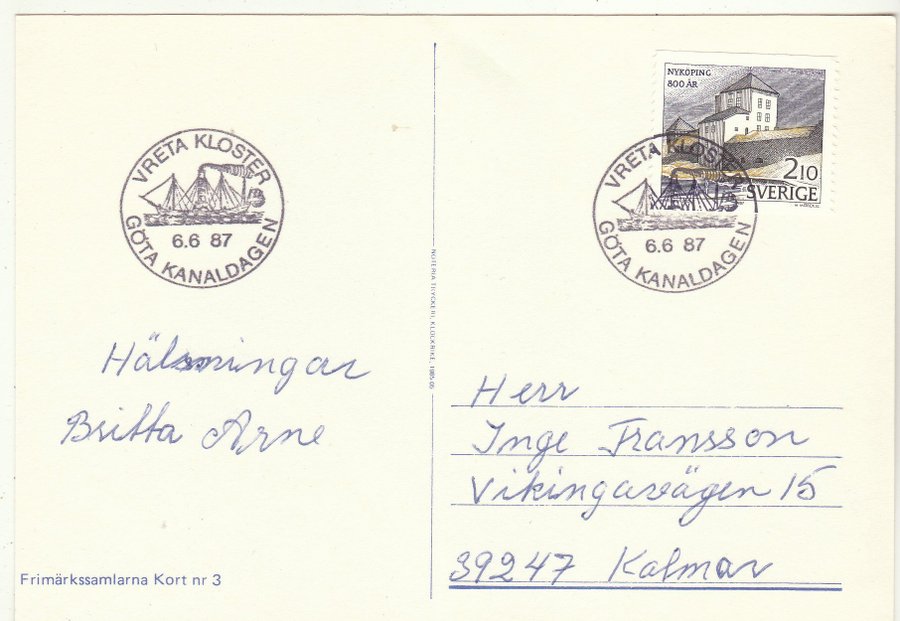 VRETA KLOSTER
6.6 87
GÖTA KANALDAGEN
Hälsningar
Britta Arne
Frimärkssamlarna Kort nr 3
NOTERIA TRYCKERI, KLOCKRIKE, 1985 05
NYKÖPING
800 ÅR
2.10
SVERIGE
VRETA KLOSTER
6.6 87
GÖTA KANALDAGEN
Herr
Inge Fransson
Vikingavägen 15
39247 Kalmar